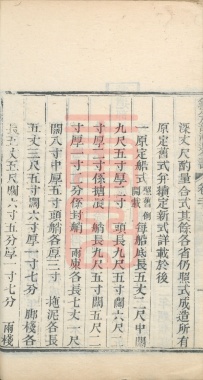 深丈尺酌量合式其餘各省仍照式成造所有
原定舊式并續定新式詳載於後
一原定船式 每船底長五丈二尺中闊
九尺五寸厚二寸 頭長九尺五寸闊六尺二
寸厚二寸 艄長九尺五寸闊五尺二
寸厚一寸 兩廒各長七丈一尺
闊八寸中厚五寸頭艄各厚三寸 拖泥各長
五丈三尺五寸闊六寸厚一寸七分 脚棧各
長五丈五尺闊六寸五分厚一寸七分 兩棧